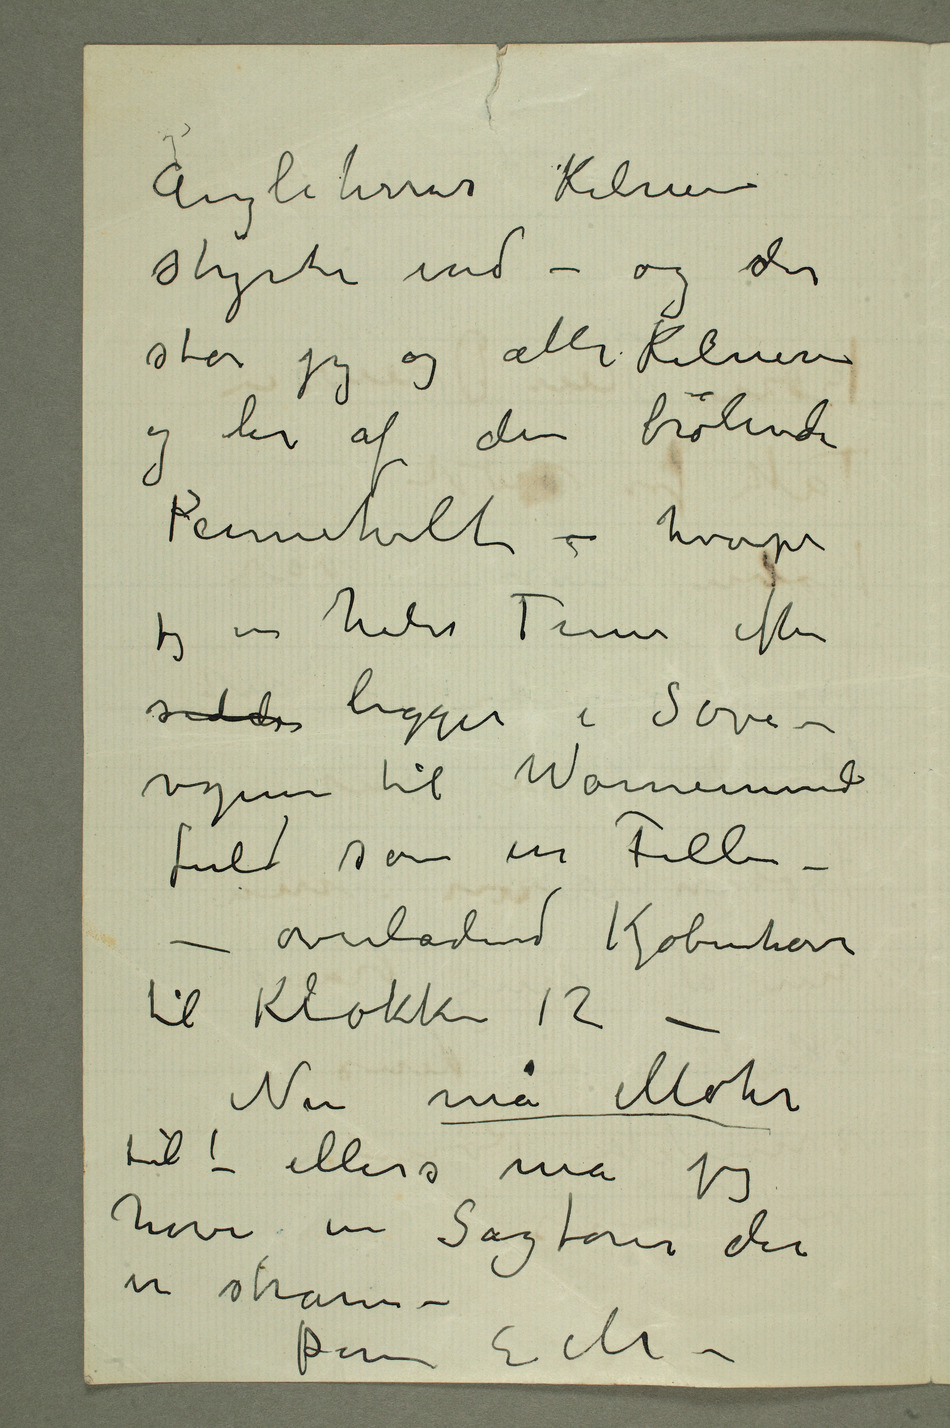 Angleterres Kelnere
styrter ind – og der
står jeg og alle Kelnerne
og ler af den brølende
Kunneholt – hvorpå
jeg en halv Time efter
sidder ligger i Sove-
vognen til Warnemünde
fuld som en Fille –
– overladende Kjøbenhavn
til Klokken 12 –
Nu må Mohr
til! – ellers må jeg
have en Sagfører der
er stram –
Din E M –